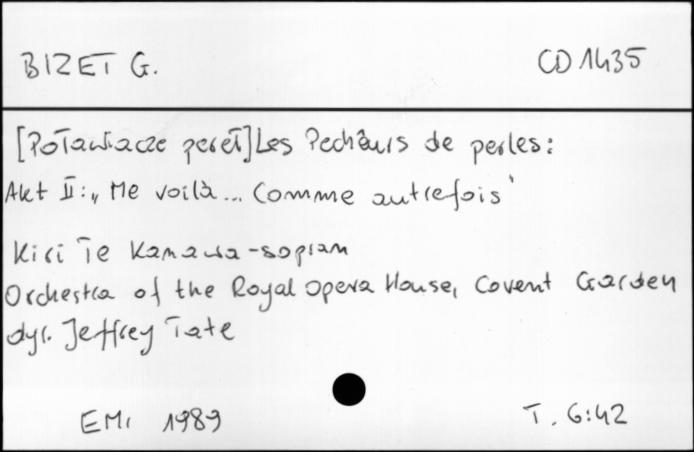 BIZET G.
CD 1435
[Poławiacze pereł] Les Pechêurs de perles:
Akt II: „Me voilà... Comme autrefois"
Kiri Te Kanawa - sopran
Orchestra of the Royal Opera House, Covent Garden
dyr. Jeffrey Tate
EMI 1989
T. 6:42